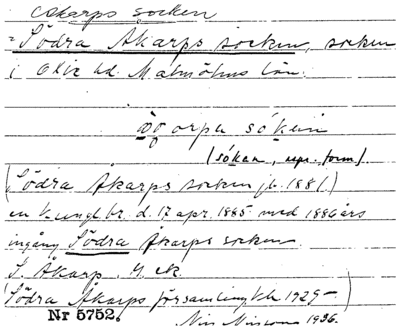 Åkarps socken
= Södra Åkarps socken, socken
i Oxie hd. Malmöhus län.
sókein
(sókan, repr. form).
(Södra Åkarps socken jb. 1881.)
en kungl br. d. 17 apr. 1885 med 1886 års
ingång Södra Åkarps socken.
S. Åkarp. G. ek.
(Södra Åkarps församling kb 1929–)
Nr 5752. Nils Nilsson 1936.